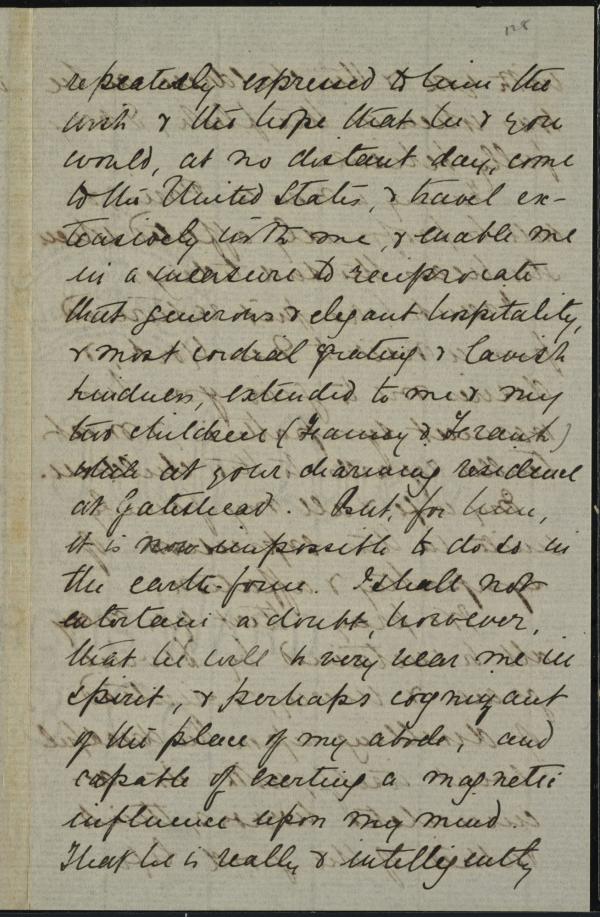 128
repeatedly expressed to him the
wish & the hope that he & you
would, at no distant day, come
to the United States, & travel ex-
tensively with me, & enable me
in a measure to reciprocate
that generous & elegant hospitality,
& most cordial greeting & lavish
kindness, extended to me & my
two children (Fanny & Frank)
while at your charming residence
at Gateshead. But, for him,
it is now impossible to do so in
the earth-form. I shall not
entertain a doubt, however,
that he will be very near me in
spirit, & perhaps cognizant
of the place of my abode, and
capable of exerting a magnetic
influence upon my mind.
That he is really & intelligently